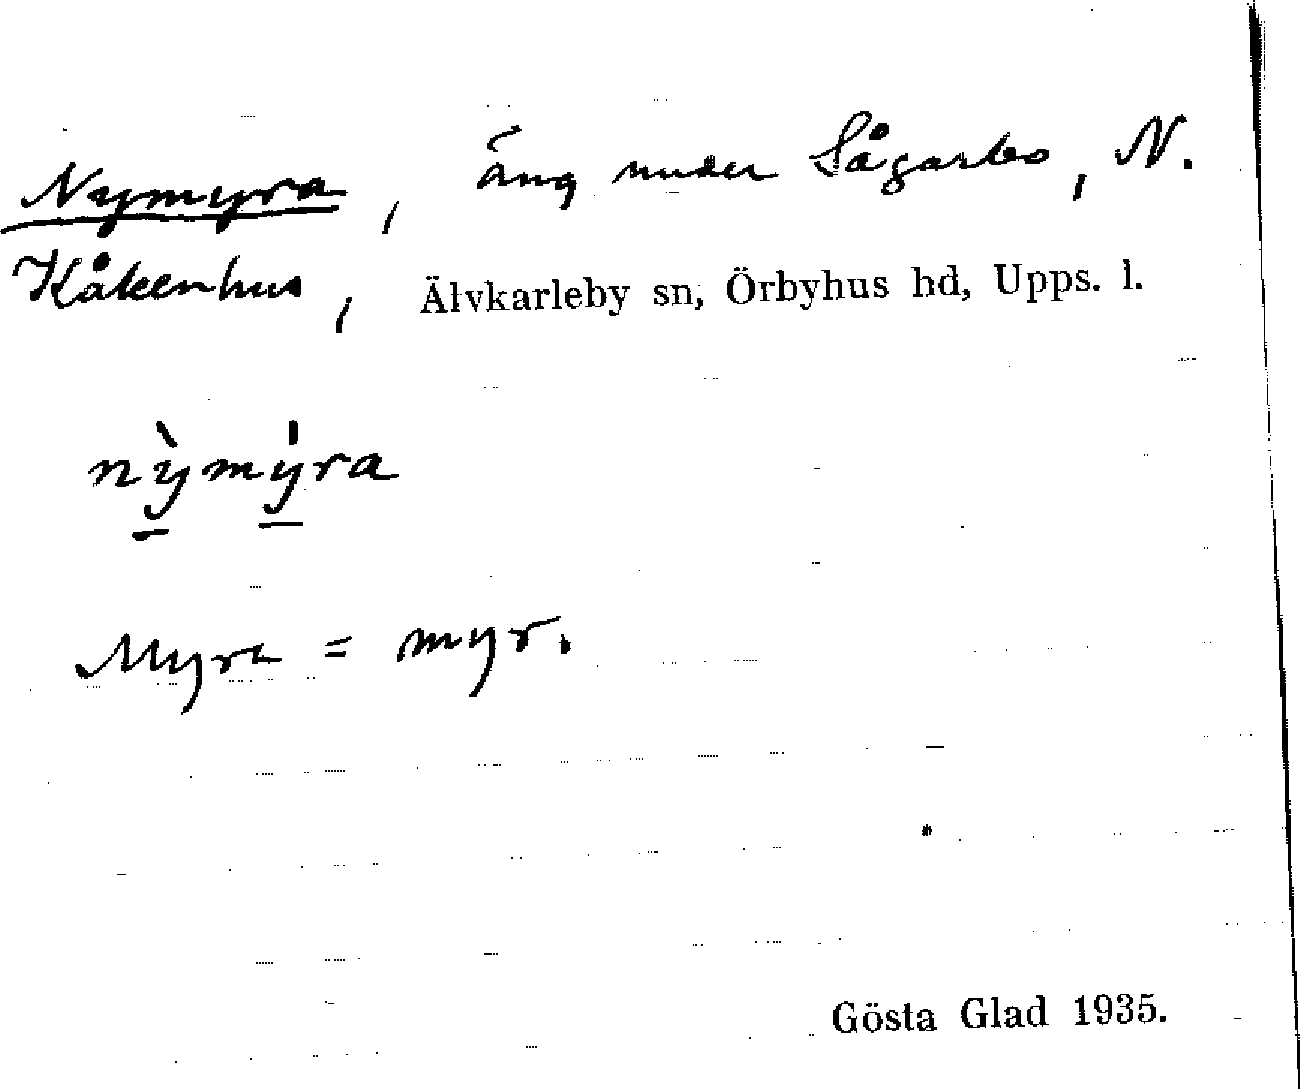 Nymyra, äng under Sågarbo, N.
Kåkenhus, Älvkarleby sn, Örbyhus hd, Upps. l.
nỳmýra
Myra = myr.
Gösta Glad 1935.